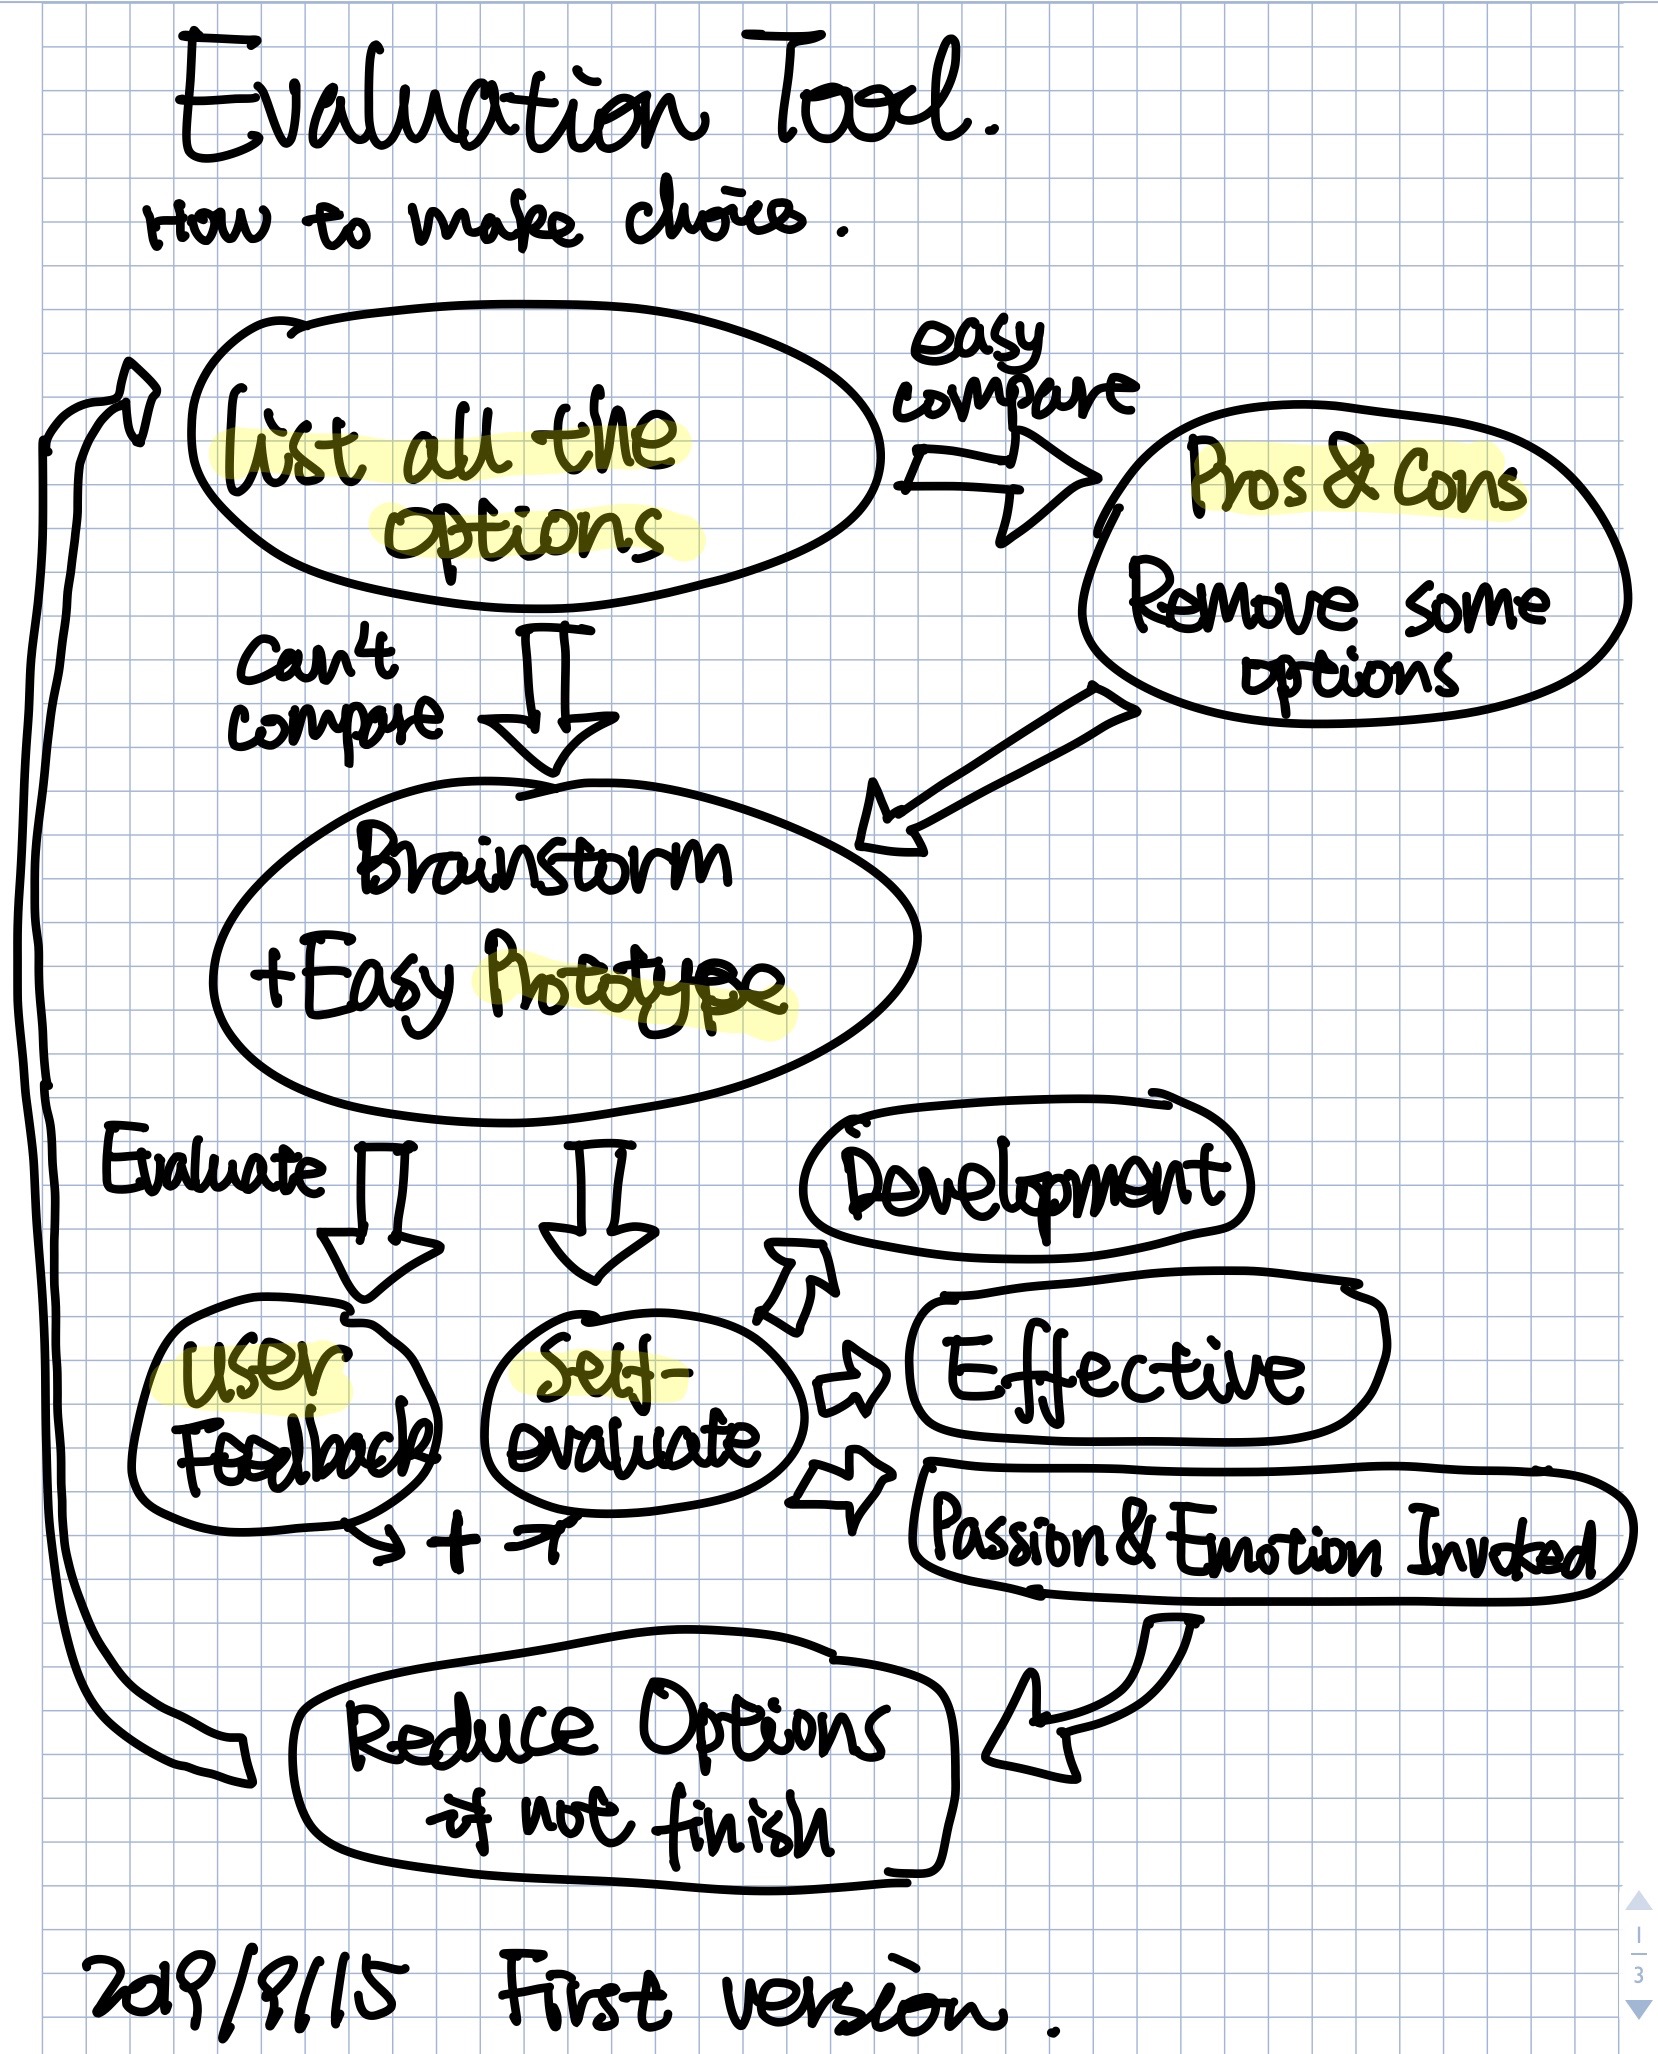 Evaluation Tool.
How to make choice.
List all the
options
easy
compare
Pros & Cons
Remove some
options
can't
compare
Brainstorm
+Easy Prototype
Evaluate
User
Feedback
Self-
evaluate
+
Development
Effective
Passion & Emotion Invoked
Reduce Options
if not finish
2019/9/15 First version.
1
3